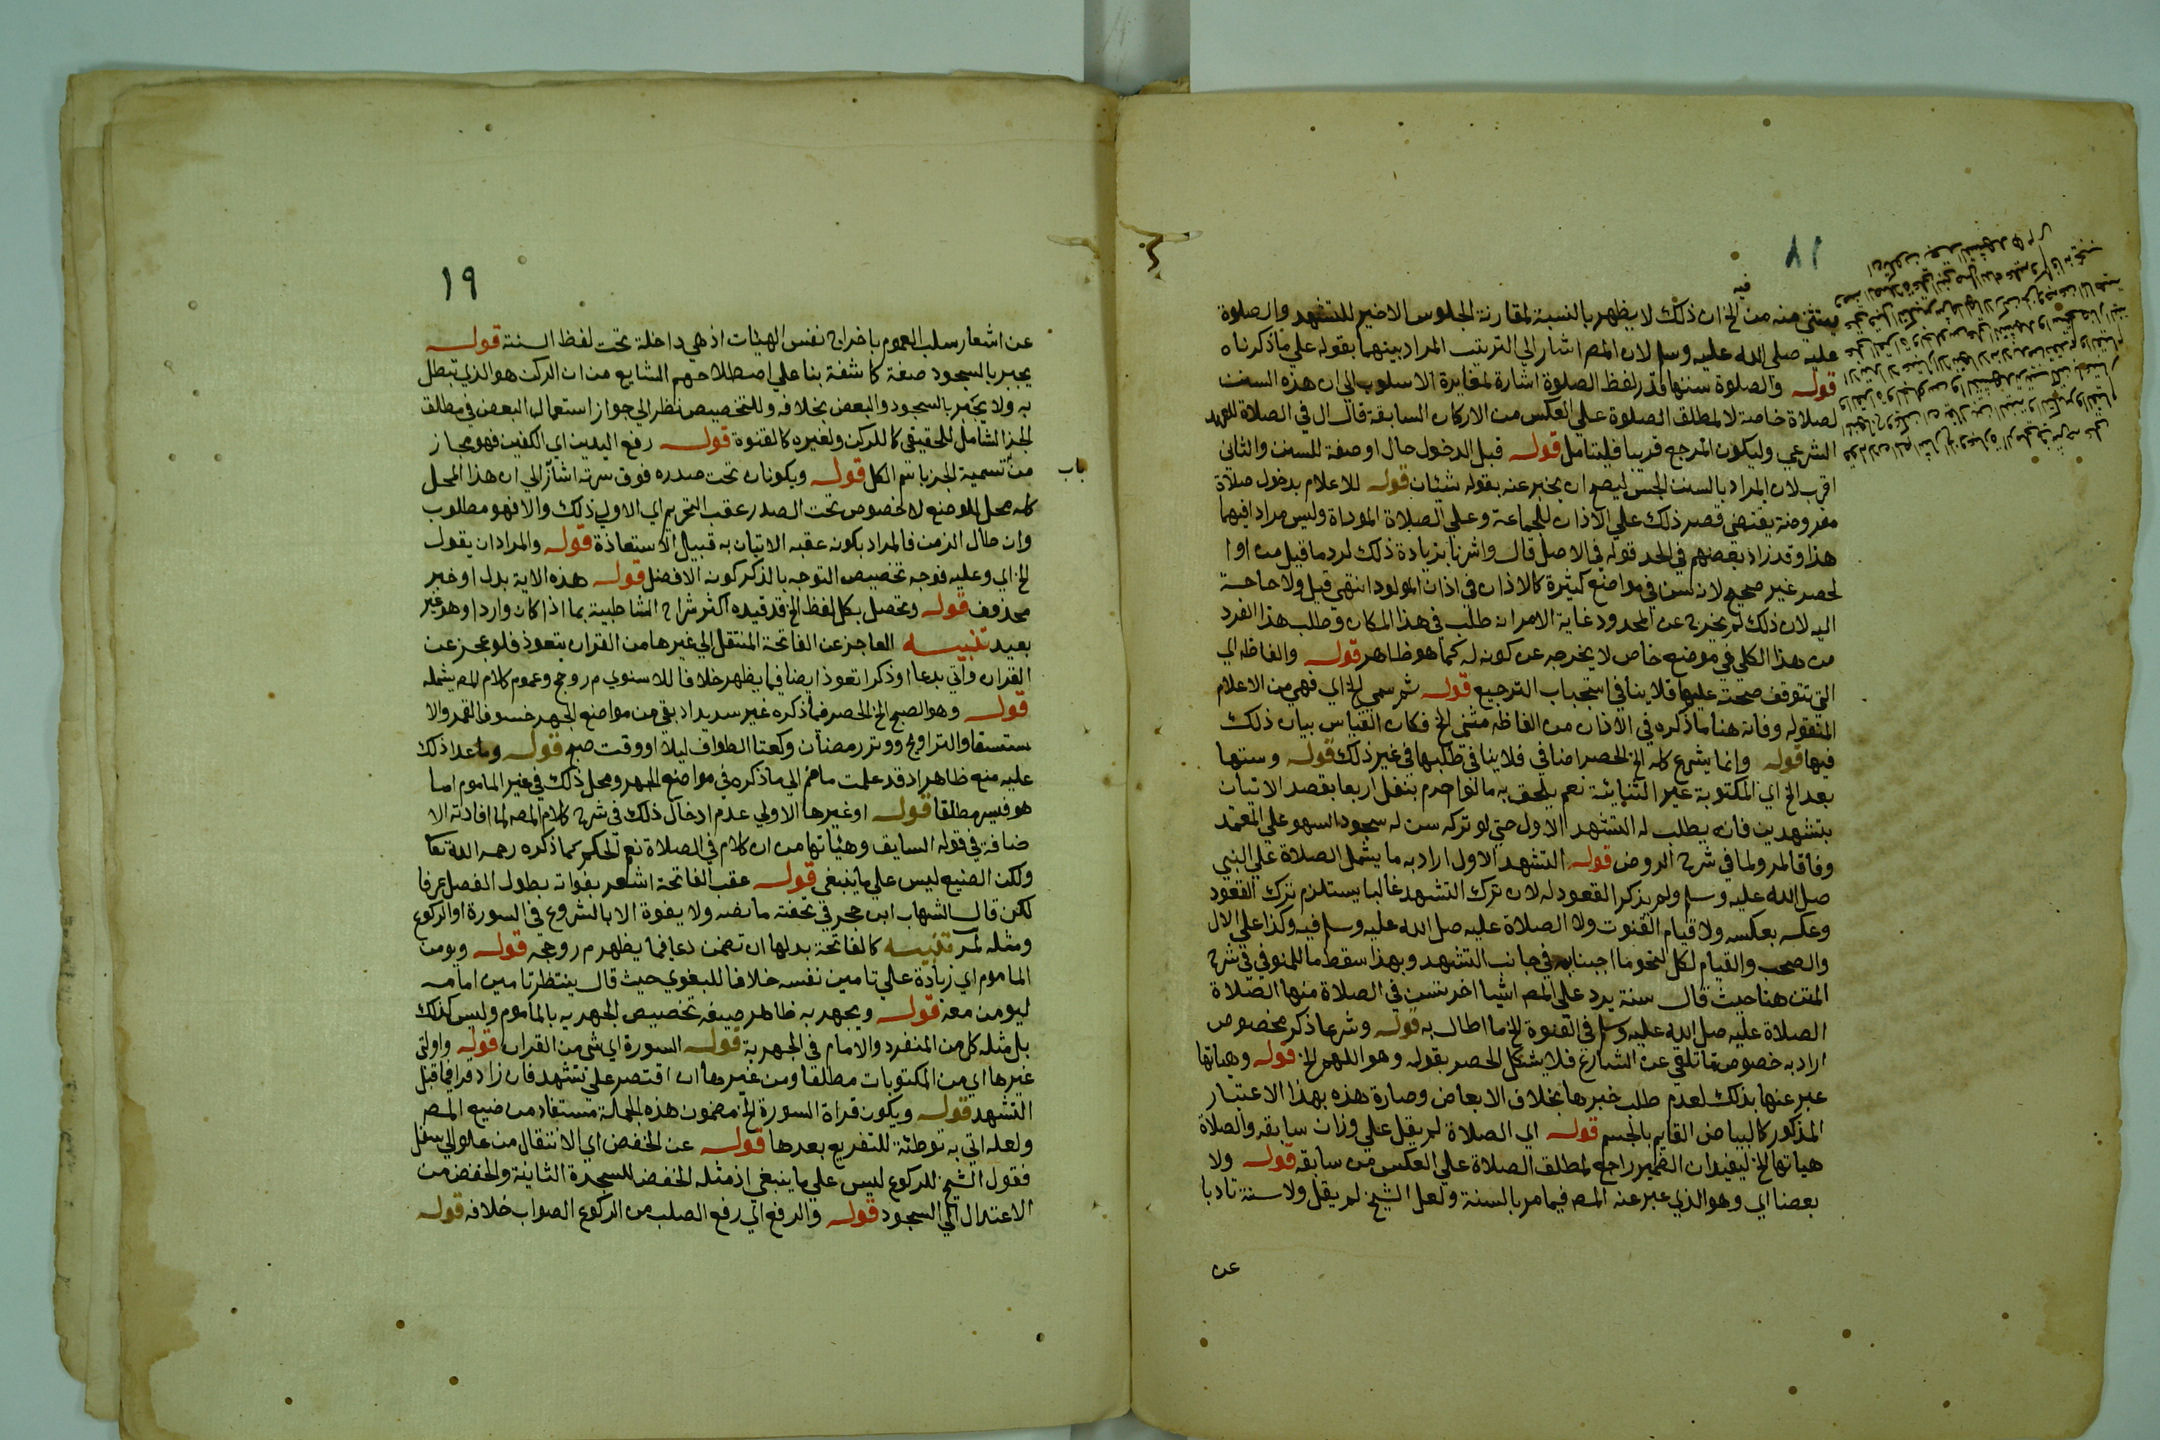 ٨١
فيه
يستثني منه من الخ ان ذلك لا يظهر بالنسبة لمقارنة الجلوس الاخير للتشهد والصلوة
عليه صلى الله عليه وسلم لان المص اشار الي الترتيب المراد بينهما بقوله علي ما ذكرناه
قوله والصلوة سننها قدر لفظ الصلوة اشارة لمغايرة الاسلوب الي ان هذه السنن
لصلاة خاصة لا لمطلق الصلوة علي العكس من الاركان السابقة فال في الصلاة للعهد
الشرعي وليكون المرجع قريبا فليتامل قوله قبل الدخول حال او صفة للسنن والثاني
اقرب لان المراد بالسنن الجنس ليصح ان يخبر عنه بقوله شيئان قوله للاعلام بدخول صلاة
مفروضة يقتضي قصر ذلك علي الاذان للجماعة وعلي الصلاة المؤداة وليس مرادا فيهما
هذا وقد زاد بعضهم في الحد قوله في الاصل قال واشرنا بزيادة ذلك لرد ما قيل من اوا
لحصر غير صحيح لانه يسن في مواضع كثيرة كالاذان في اذان المولود انتهي قيل ولا حاجة
اليه لان ذلك لم يخرج عن المحدود غاية الامر انه طلب في هذا المكان وطلب هذا الفرد
من هذا الكلي في موضع خاص لا يخرجه عن كونه له كما هو ظاهر قوله والفاظه اي
التي تتوقف صحته عليها فلا ينافي استحباب الترجيع قوله ثم سمي الخ اي فهي من الاعلام
المنقوله وفاته هنا ما ذكره في الاذان من الفاظه مثنى الخ فكان القياس بيان ذلك
فيها قوله وانما يشرع كله الخ الحصر اضافي فلا ينافي طلبها في غير ذلك قوله وسننها
بعد الخ اي المكتوبة غير الثنائية نعم يلحق به ما لو احرم بنفل اربعا بقصد الاتيان
بتشهدين فانه يطلب له التشهد الاول حتي لو تركه سن له سجود السهو علي المعتمد
وفاقا لمر ولما في شرح الروض قوله التشهد الاول اراد به ما يشمل الصلاة علي النبي
صلى الله عليه وسلم ولم يذكر القعود له لان ترك التشهد غالبا يستلزم ترك القعود
وعكسه بعكسه ولا قيام القنوت ولا الصلاة عليه صلى الله عليه وسلم فيه وكذا علي الال
والصحب والقيام لكل لنحو ما اجبنا به في جانب التشهد وبهذا سقط ما للمنوفي في شرح
المتن هنا حيث قال سنة يرد علي المص اشيا اخر تسن في الصلاة منها الصلاة
الصلاة عليه صلى الله عليه وسلم في القنوة الخ ما اطال به قوله وشرعا ذكر مخصوص
اراد به خصوص ما تلقي عن الشارع فلا يشكل الحصر بقوله وهو اللهم الخ قوله وهياتها
عبر عنها بذلك لعدم طلب خبرها بخلاف الابعاض وصارة هذه بهذا الاعتبار
المذكور كالبياض القايم بالجسم قوله اي الصلاة لم يقل علي وزان سابقه والصلاة
هياتها الخ ليفيد ان الضمير راجع لمطلق الصلاة علي العكس من سابقه قوله ولا
بعضا اي وهو الذي عبر عنه المص فيما مر بالسنة ولعل الشيخ لم يقل ولا سنة تادبا
عن
١٩
عن اشعار سلب العموم باخراج نفس الهيئات اذ هي داخلة تحت لفظ السنة قوله
يجبر بالسجود صفة كاشفة بنا علي اصطلاحهم الشايع من ان الركن هو الذي تبطل
به ولا يجبر بالسجود والبعض بخلافه وللتخصيص نظرا الي جواز استعمال البعض في مطلق
الجز الشامل للحقيقي كالركن ولغيره كالقنوة قوله رفع اليدين اي الكفين فهو مجاز
باب
من تسمية الجز باسم الكل قوله ويكونان تحت صدره فوق سرته اشار الي ان هذا المحل
كله محل للوضع لا خصوص تحت الصدر عقب التحريم اي الاولي ذلك والا فهو مطلوب
وان طال الزمن فالمراد بكونه عقبه الاتيان به قبيل الاستعاذة قوله والمراد ان يقول
الخ اي وعليه فوجه تخصيص التوجه بالذكر كونه الافضل قوله هذه الاية بدل او خبر
محذوف قوله وتحصل بكل لفظ الخ قد قيده اكثر شراح الشاطبية بما اذا كان واردا وهو غير
بعيد تنبيه العاجز عن الفاتحة المنتقل الي غيرها من القران يتعوذ فلو عجز عن
القران واتي بدعا او ذكر تعوذ ايضا فيما يظهر خلافا للاسنوي م ر وحج وعموم كلام المص يشمله
قوله وهو الصبح الخ الحصر فيما ذكره غير سديد اذ بقي من مواضع الجهر خسوف القمر والا
ستسقا والتراويح ووتر رمضان وركعتا الطواف ليلا او وقت صبح قوله وما عدا ذلك
عليه منع ظاهر اذ قد علمت ما ضم الي ما ذكره في مواضع الجهر ومحل ذلك في غير الماموم اما
هو فيسر مطلقا قوله او غيرها الاولي عدم ادخال ذلك في شرح كلام المص لما افادته الا
ضافة في قوله السابق وهيئاتها من ان كلام في الصلاة نعم الحكم كما ذكره رحمه الله تعا
ولكن الصنيع ليس علي ما ينبغي قوله عقب الفاتحة اشعر بفواته بطول الفصل عرفا
لكن قال الشهاب ابن حجر في تحفته ما نصه ولا يفوة الا بالشروع في السورة او الركوع
ومثله لمر تنبيه كالفاتحة بدلها ان تضمن دعا فيما يظهر م ر وحج قوله ويومن
الماموم اي زيادة علي تامين نفسه خلافا للبغوي حيث قال ينتظر تامين امامه
ليومن معه قوله ويجهر به ظاهر صنيعه تخصيص الجهر به بالماموم وليس كذلك
بل مثله كل من المنفرد والامام في الجهرية قوله السورة اي شي من القران قوله واولتي
غيرها اي من المكتوبات مطلقا ومن غيرها ان اقتصر علي تشهد فان زاد قرا فيما قبل
التشهد قوله ويكون قراة السورة الخ مضمون هذه الجملة مستفاد من صنيع المص
ولعله اتي به توطئة للتفريع بعدها قوله عن الخفض اي الانتقال من علو الي سفل
فقول الشيخ للركوع ليس علي ما ينبغي اذ مثله الخفض للسجدة الثانية والخفض من
الاعتدال الي السجود قوله والرفع اي رفع الصلب من الركوع الصواب خلافه قوله